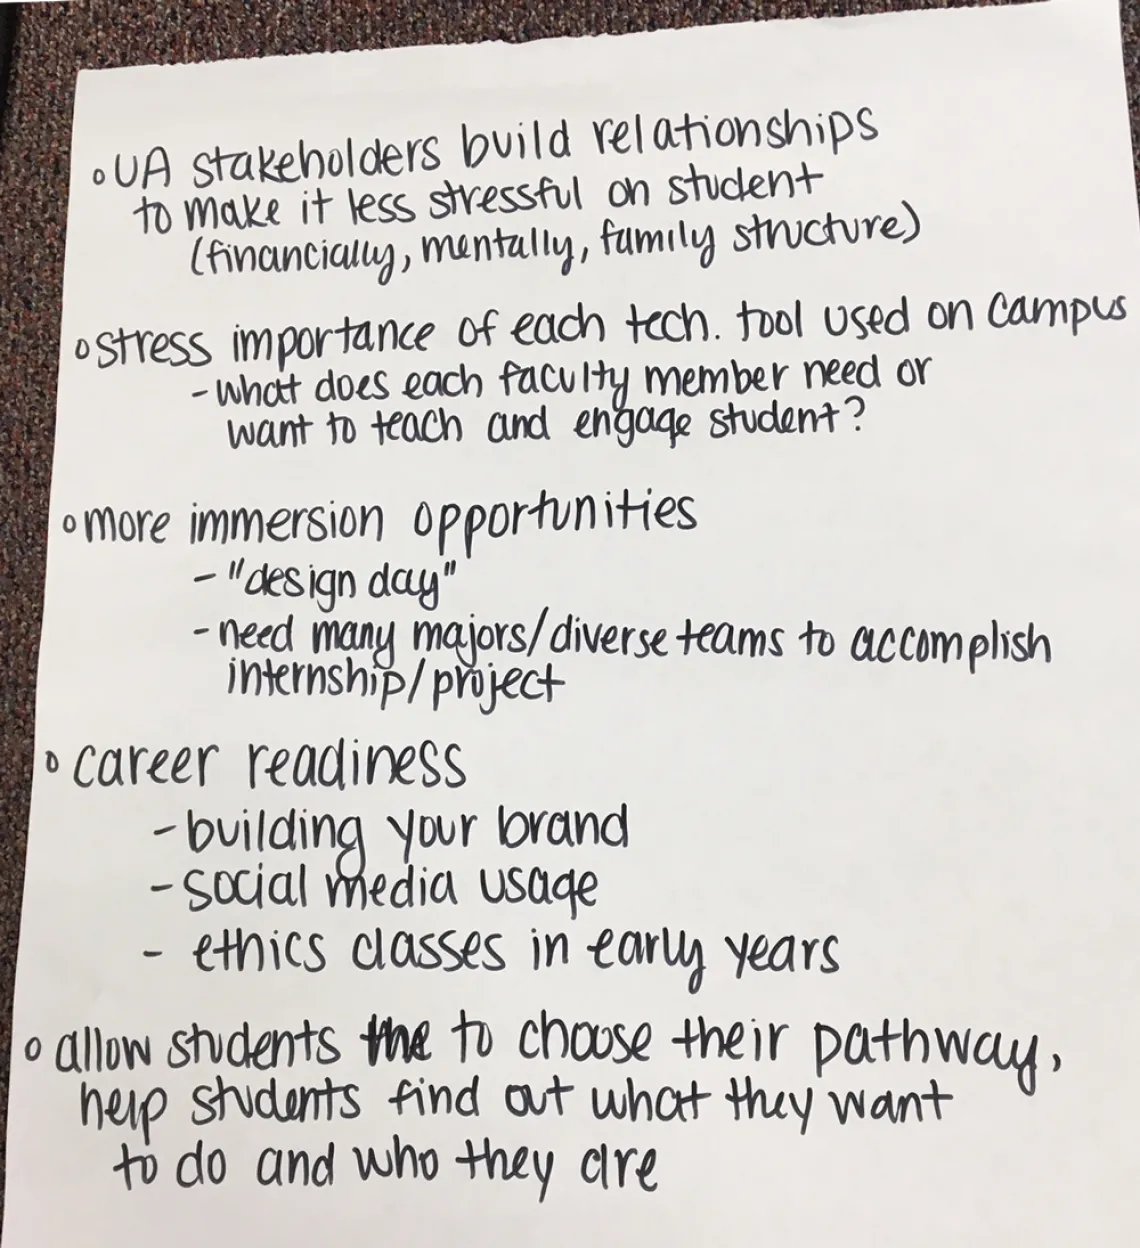 ◦ UA stakeholders build relationships
to make it less stressful on student
(financially, mentally, family structure)
◦ stress importance of each tech. tool used on campus
- what does each faculty member need or
want to teach and engage student?
◦ more immersion opportunities
- "design day"
- need many majors/diverse teams to accomplish
internship/project
◦ career readiness
- building your brand
- social media usage
- ethics classes in early years
◦ allow students the to choose their pathway,
help students find out what they want
to do and who they are